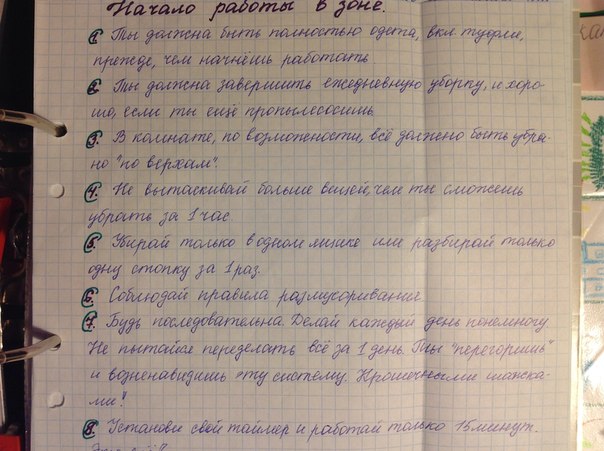 Начало работы в зоне.
1. Ты должна быть полностью одета, вкл. туфли,
прежде, чем начнёшь работать
2. Ты должна завершить ежедневную уборку, и хоро-
шо, если ты ещё пропылесосишь
3. В комнате, по возможности, всё должно быть убра-
но "по верхам".
4. Не вытаскивай больше вещей, чем ты сможешь
убрать за 1 час
5. Убирай только в одном ящике или разбирай только
одну стопку за 1 раз.
6. Соблюдай правила размусоривания
7. Будь последовательна. Делай каждый день понемногу.
Не пытайся переделать всё за 1 день. Ты "перегоришь"
и возненавидишь эту систему. Крошечными шажка-
ми!
8. Установи свой таймер и работай только 15 минут.